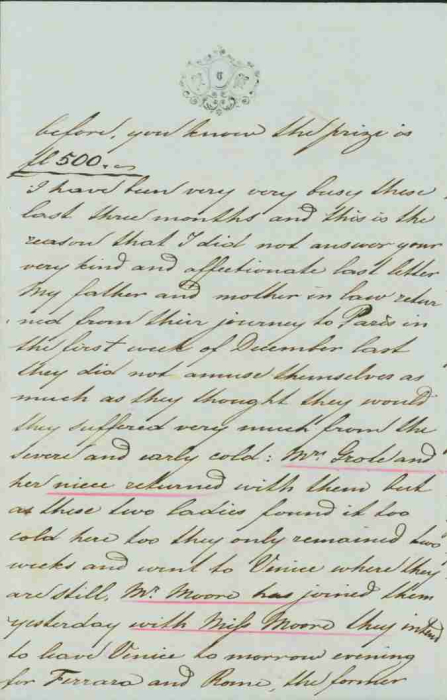 before, you know the prize is
fl 500.
I have been very very busy these
last three months and this is the
reason that I did not answer your
very kind and affectionate last letter
My father and mother in law retur
ned from their journey to Paris in
the first week of December last
they did not amuse themselves as
much as they thought they would
they suffered very much from the
severe and early cold: Mrs Grote and
her niece returned with them but
as these two ladies found it too
cold here too they only remained two
weeks and went to Venice where they
are still. Mr Moore has joined them
yesterday with Miss Moore they intend
to leave Venice to morrow evening
for Ferrara and Rome, the former